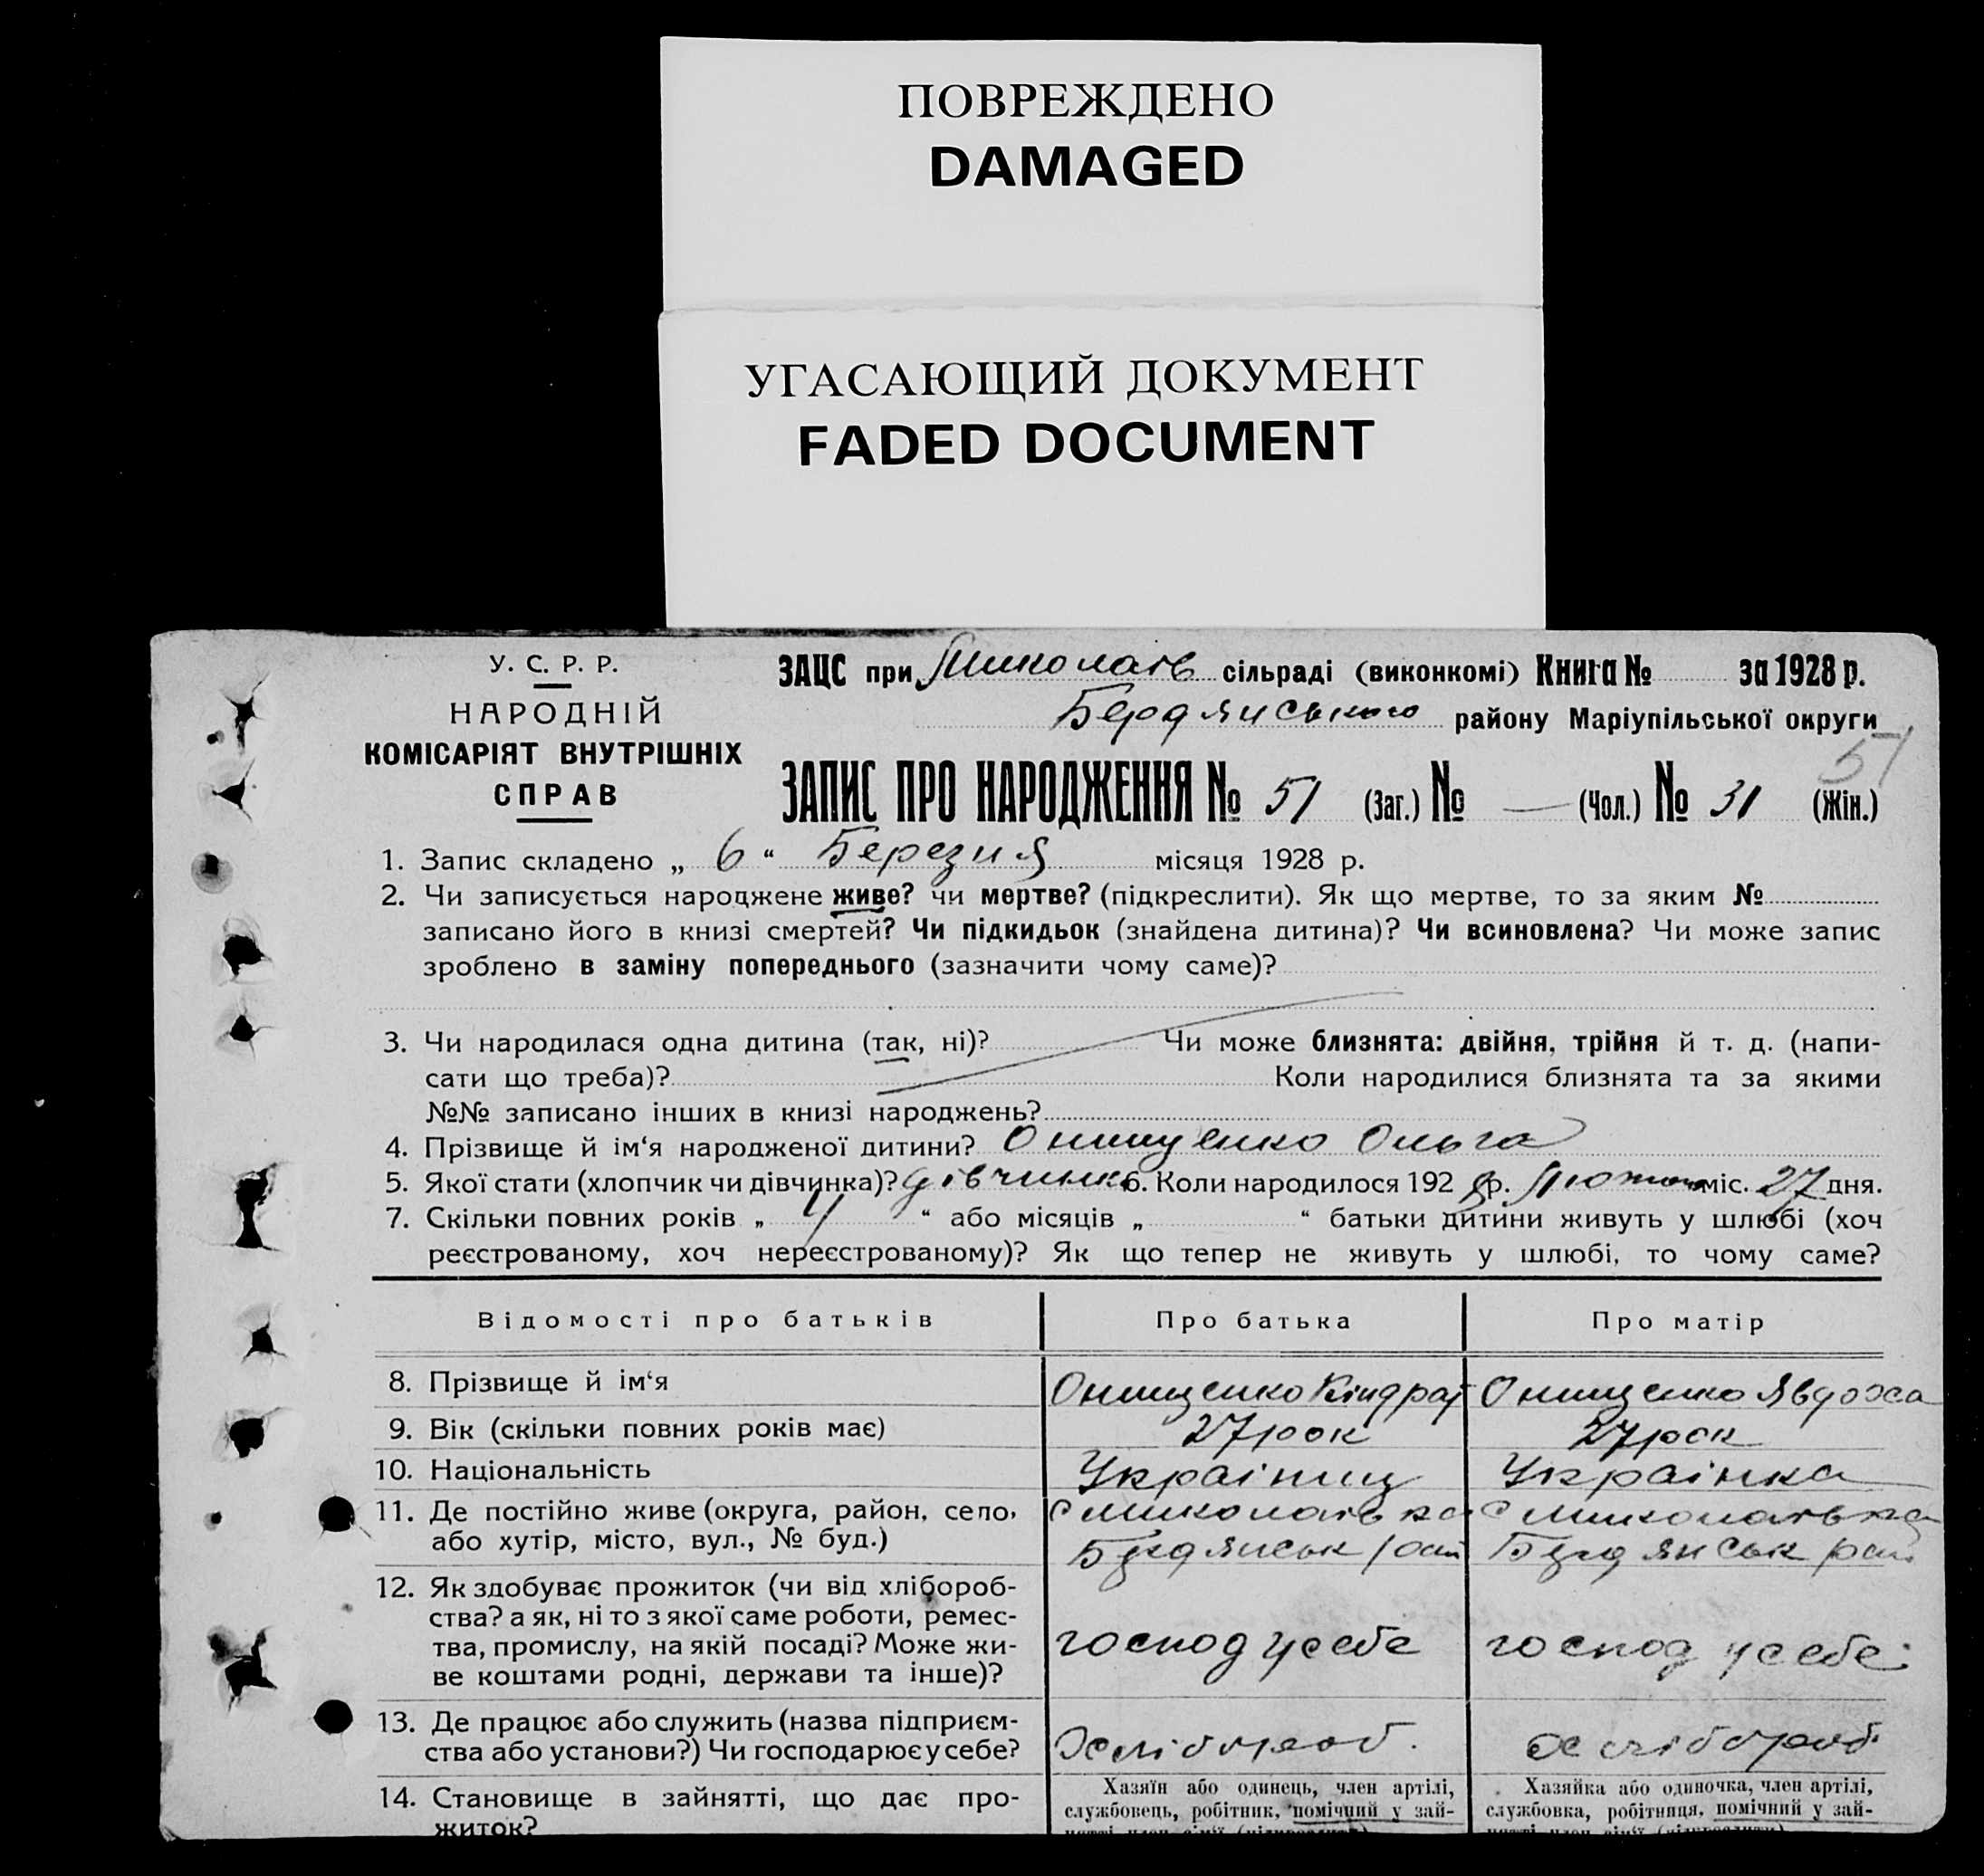 ПОВРЕЖДЕНО
DAMAGED
УГАСАЮЩИЙ ДОКУМЕНТ
FADED DOCUMENT
У. С. Р. Р.
НАРОДНІЙ
КОМІСАРІЯТ ВНУТРІШНІХ
СПРАВ
ЗАЦС при Миколаїв сільраді (виконкомі) Книга № за 1928 р.
Бердянського району Маріупільської округи
51
ЗАПИС ПРО НАРОДЖЕННЯ № 51 (Заг.) № — (Чол.) № 31 (Жін.)
1. Запис складено „ 6 “ Березня місяця 1928 р.
2. Чи записується народжене живе? чи мертве? (підкреслити). Як що мертве, то за яким №
записано його в книзі смертей? Чи підкидьок (знайдена дитина)? Чи всиновлена? Чи може запис
зроблено в заміну попереднього (зазначити чому саме)?
3. Чи народилася одна дитина (так, ні)? Чи може близнята: двійня, трійня й т. д. (напи-
сати що треба)? Коли народилися близнята та за якими
№№ записано інших в книзі народжень?
4. Прізвище й ім‘я народженої дитини? Онищенко Ольга
5. Якої стати (хлопчик чи дівчинка)? дівчинка 6. Коли народилося 192 8 р. Лютого міс. 27 дня.
7. Скільки повних років „ 4 “ або місяців „ “ батьки дитини живуть у шлюбі (хоч
реєстрованому, хоч нереєстрованому)? Як що тепер не живуть у шлюбі, то чому саме?
Відомості про батьків Про батька Про матір
8. Прізвище й ім‘я Онищенко Кіндрат Онищенко Явдоха
9. Вік (скільки повних років має) 27 рок 27 рок
10. Національність Українц Українка
11. Де постійно живе (округа, район, село, с Миколаївка с Миколаївка
або хутір, місто, вул., № буд.) Бердянськ рай Бердянськ рай
12. Як здобуває прожиток (чи від хлібороб-
ства? а як, ні то з якої саме роботи, ремес-
тва, промислу, на якій посаді? Може жи- господ у себе господ у себе
ве коштами родні, держави та інше)?
13. Де працює або служить (назва підприєм-
ства або установи?) Чи господарює у себе? Хлібороб. хлібороб.
14. Становище в зайнятті, що дає про- Хазяїн або одинець, член артілі, Хазяйка або одиночка, член артілі,
житок? службовець, робітник, помічний у зай- службовка, робітниця, помічний у зай-